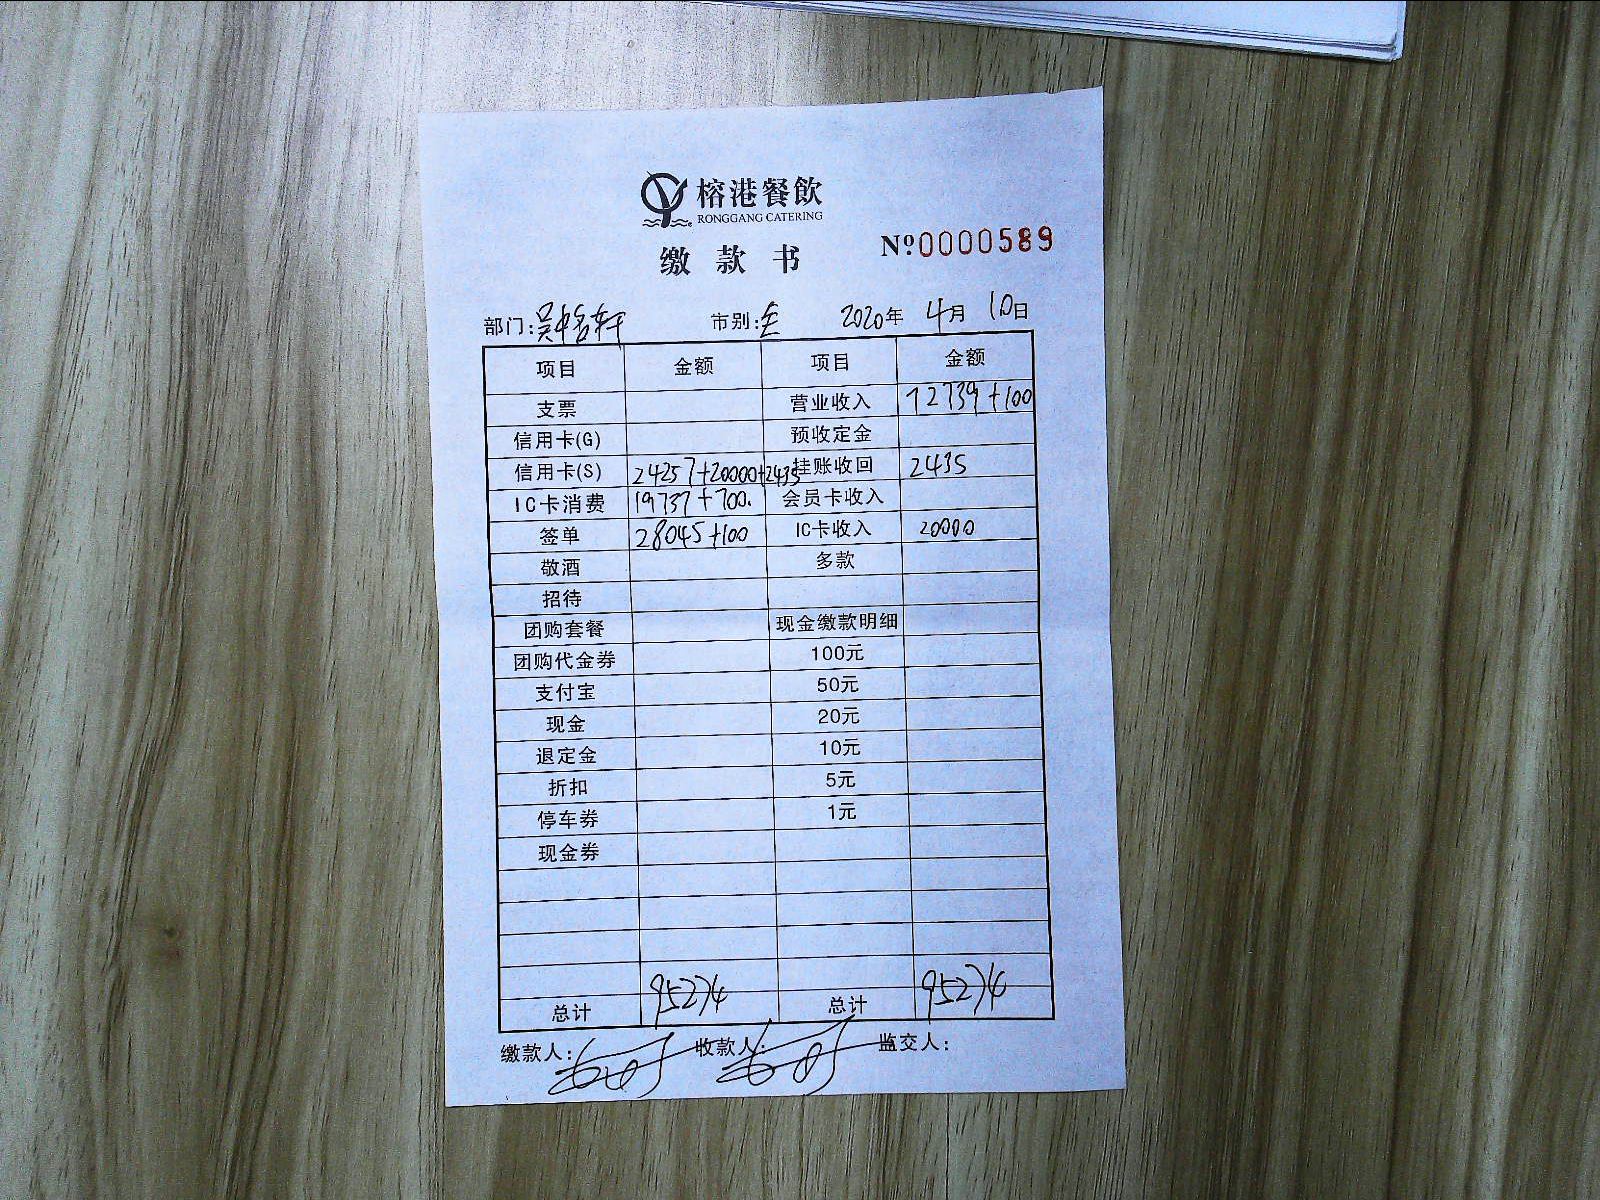 榕港餐飲
RONGGANG CATERING
缴款书 Nº0000589
部门:吴中名轩 市别:全 2020年 4月 10日
项目 金额 项目 金额
支票 营业收入 72739+100
信用卡(G) 预收定金
信用卡(S) 24257+20000+2435 挂账收回 2435
IC卡消费 19737+700. 会员卡收入
签单 28045+100 IC卡收入 20000
敬酒 多款
招待
团购套餐 现金缴款明细
团购代金券 100元
支付宝 50元
现金 20元
退定金 10元
折扣 5元
停车券 1元
现金券
总计 95274 总计 95274
缴款人: 收款人: 监交人: